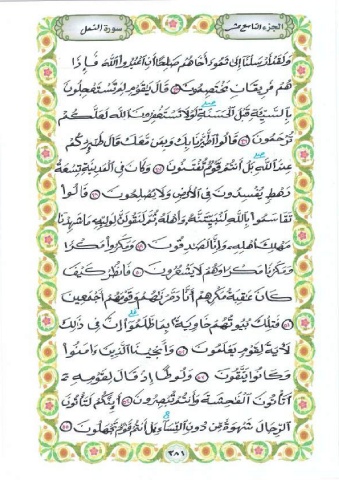 الجزء التاسع عشر
سورة النمل
ولقد أرسلنا إلى ثمود أخاهم صلحا أن اعبدوا الله فإذا
هم فريقان يختصمون ٤٥ قال يقوم لم تستعجلون
بالسيئة قبل الحسنة لولا تستغفرون الله لعلكم
ترحمون ٤٦ قالوا اطيرنا بك وبمن معك قال طئركم
عند الله بل أنتم قوم تفتنون ٤٧ وكان في المدينة تسعة
رهط يفسدون في الأرض ولا يصلحون ٤٨ قالوا
تقاسموا بالله لنبيتنه وأهله ثم لنقولن لوليه ما شهدنا
مهلك أهله وإنا لصدقون ٤٩ ومكروا مكرا
ومكرنا مكرا وهم لا يشعرون ٥٠ فانظر كيف
كان عقبة مكرهم أنا دمرنهم وقومهم أجمعين
٥١ فتلك بيوتهم خاوية بما ظلموا إن في ذلك
لآية لقوم يعلمون ٥٢ وأنجينا الذين ءامنوا
وكانوا يتقون ٥٣ ولوطا إذ قال لقومه
أتأتون الفحشة وأنتم تبصرون ٥٤ أئنكم لتأتون
الرجال شهوة من دون النساء بل أنتم قوم تجهلون ٥٥
٣٨١